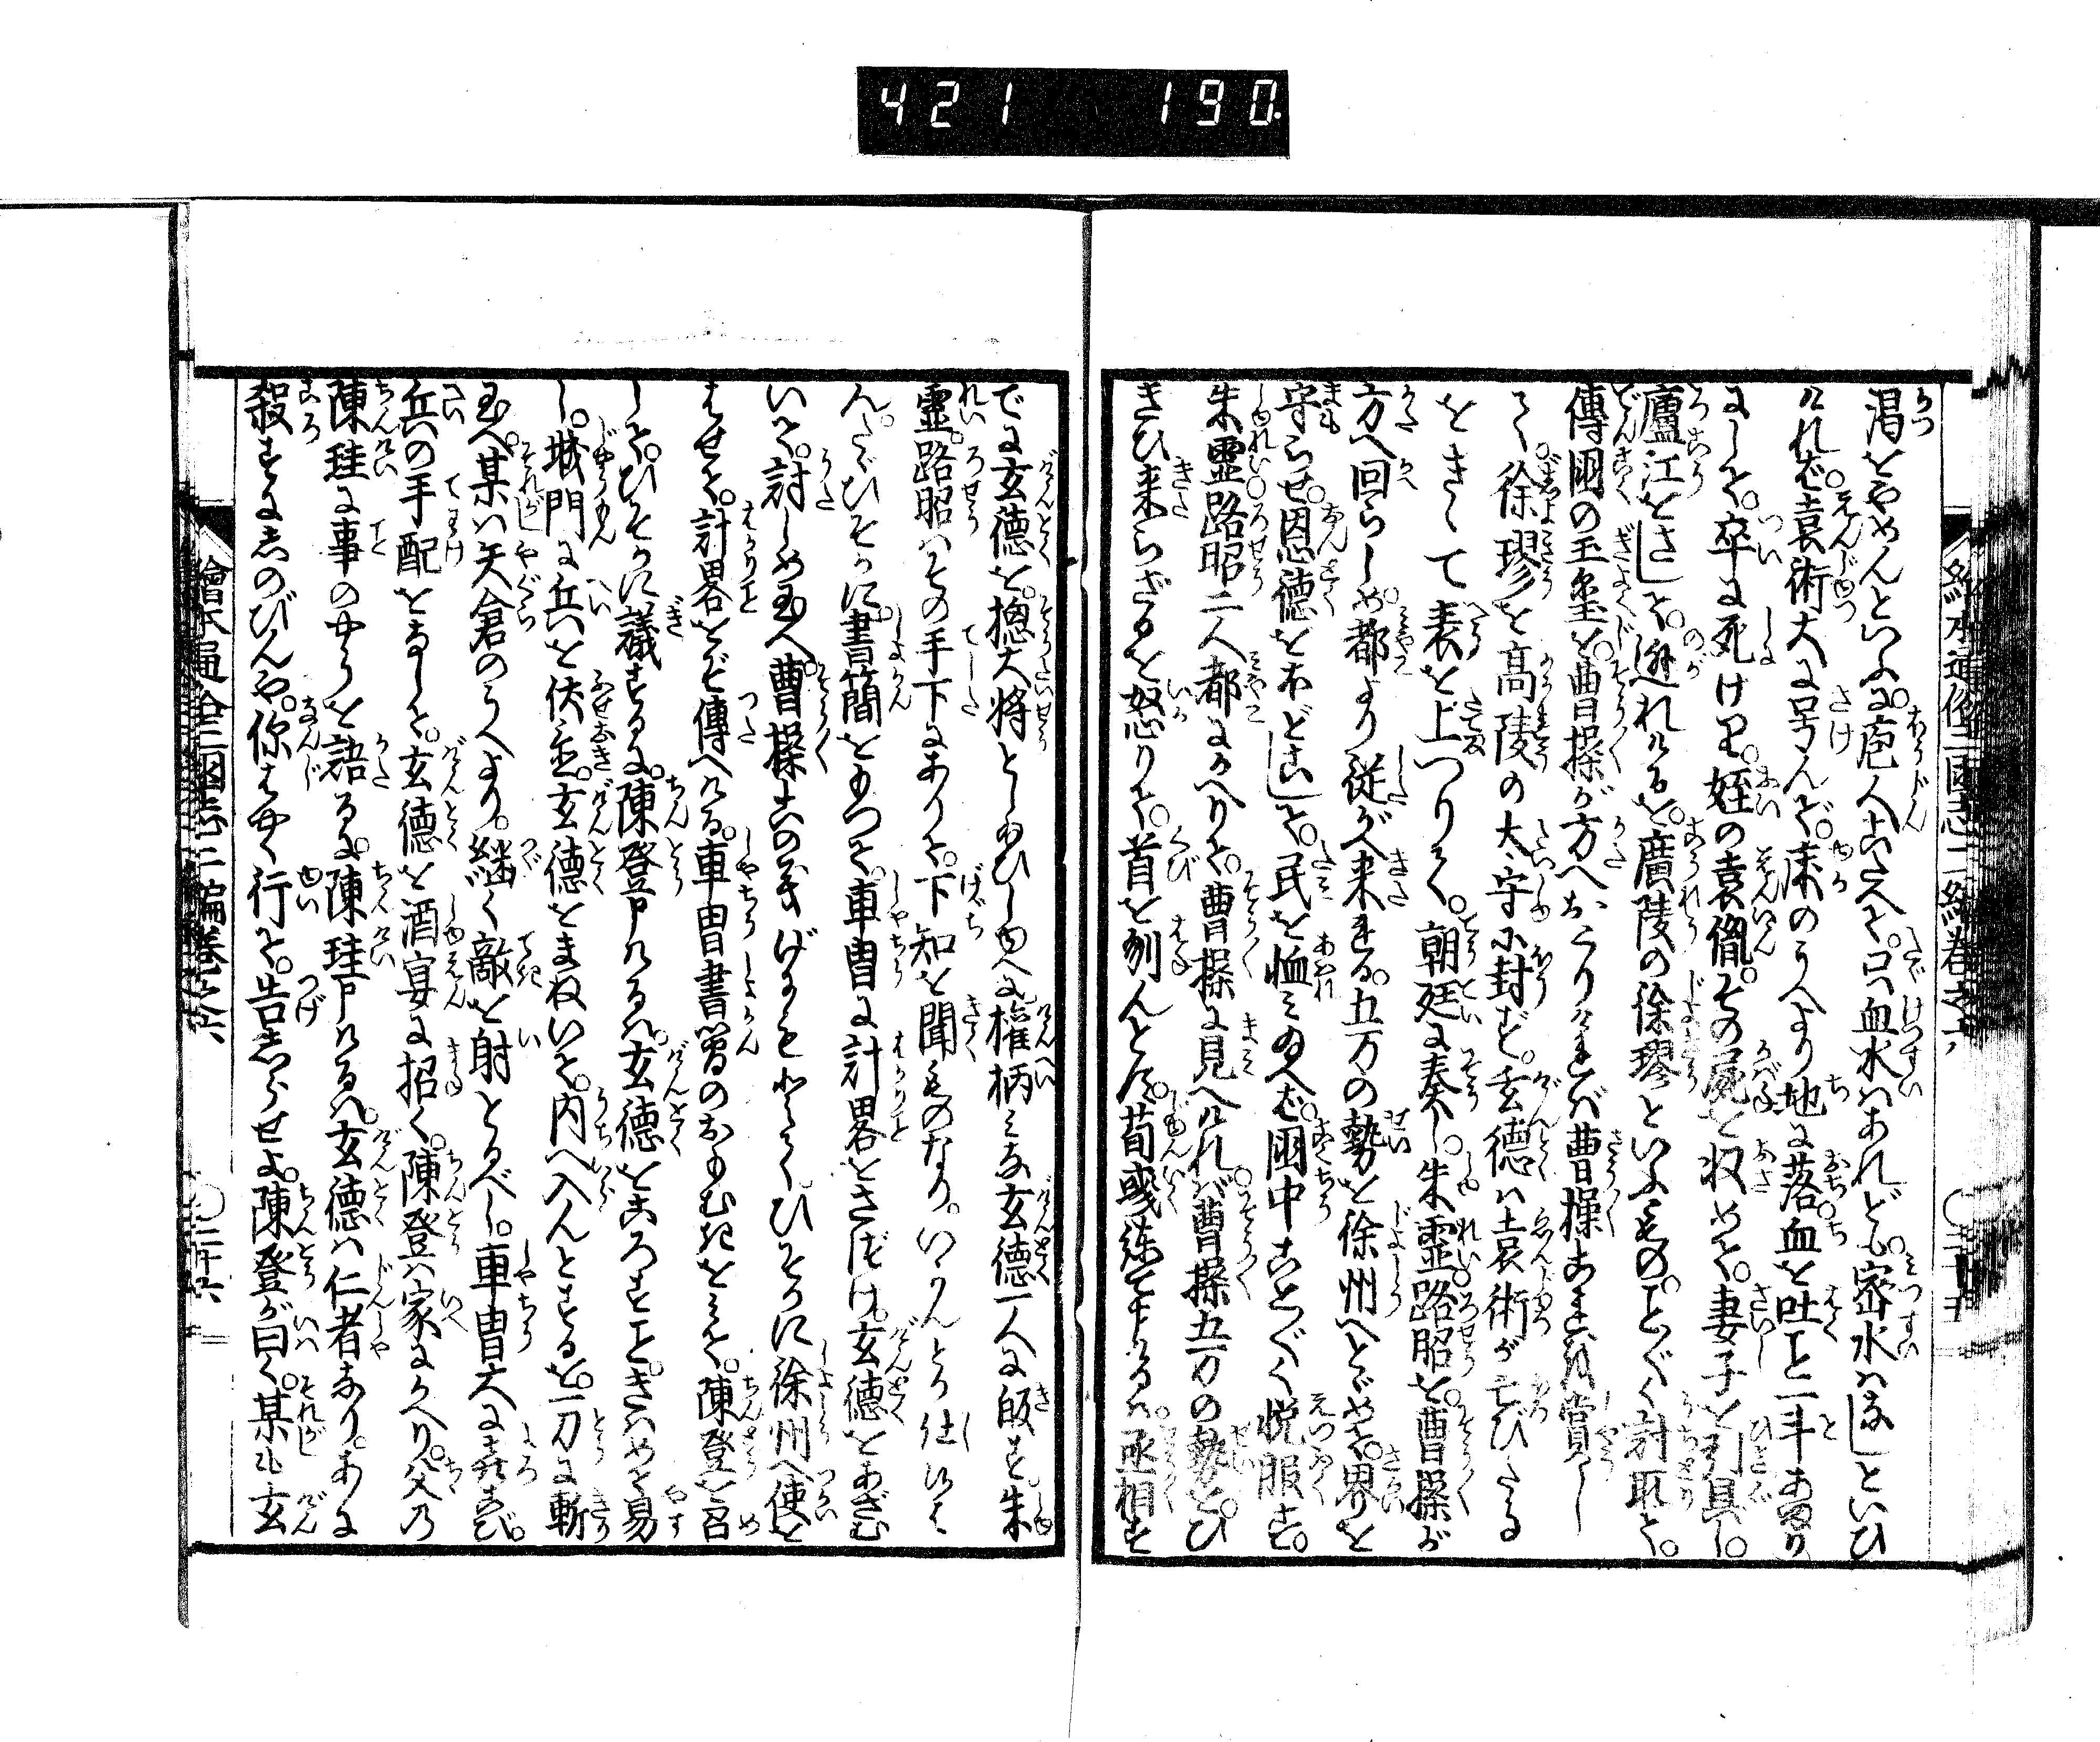 421 190.
繪本通俗三國志二編巻之六
渇をやめんといふに。庖人こたへて。只血水はあれども。密水はなしといひ
ければ。袁術大に叫んで。床のうへより地に落。血を吐こと一斗あまり
にして。卒に死けり。姪の袁胤。その屍を收めて。妻子を引具し。
廬江をさして。逃れけるを。廣陵の徐璆といふもの。ことごとく討取て。
傳國の玉璽を。曹操が方へおくりければ曹操これを賞し
て。徐璆を高陵の太守に封ず。玄德は袁術が亡びたる
をきゝて表を上つりて。朝廷に奏し。朱靈路昭を。曹操が
方へ回らしめ。都より従がへ来れる。五万の勢を徐州へとゞめて。界を
守らせ。恩德をほどこして。民を恤みたまへば。國中ことごとく悦服す。
朱靈路昭二人都にかへりて。曹操に見へければ。曹操五万の勢をひ
きひ来らざるを怒りて。首を刎んとす。荀彧諫て申けるは。丞相す
でに玄德を。摠大将としたまひしゆへに権柄みな玄德一人に皈す。朱
靈。路昭はその手下にありて。下知を聞ものなり。いかんとか仕候はん
ん。たゞひそかに。書簡をもつて。車冑に計畧をさづけ。玄德をあざむ
いて。討しめ玉へ。曹操この義げにもとて。ひそかに徐州へ使を
はせて。計畧をぞ傳へける。車冑書簡のおもむきをみて。陳登を召
して。ひそかに議するに。陳登申けるは。玄德をころすこと。きはめて易
し。城門に兵を伏置。玄德をまねいて。内へ入んとするを。一刀に斬
玉へ。某は矢倉のうへより。継く敵を射とるべし。車冑大に喜び。
兵の手配をなして。玄德を酒宴に招く。陳登は家にかへり。父の
陳珪に事のやうを語るに。陳珪申けるは。玄德は仁者なり。あに
殺すにしのびんや。你はやく行て。告しらせよ。陳登が曰く。某も玄
繪本通俗三國志二編巻之六